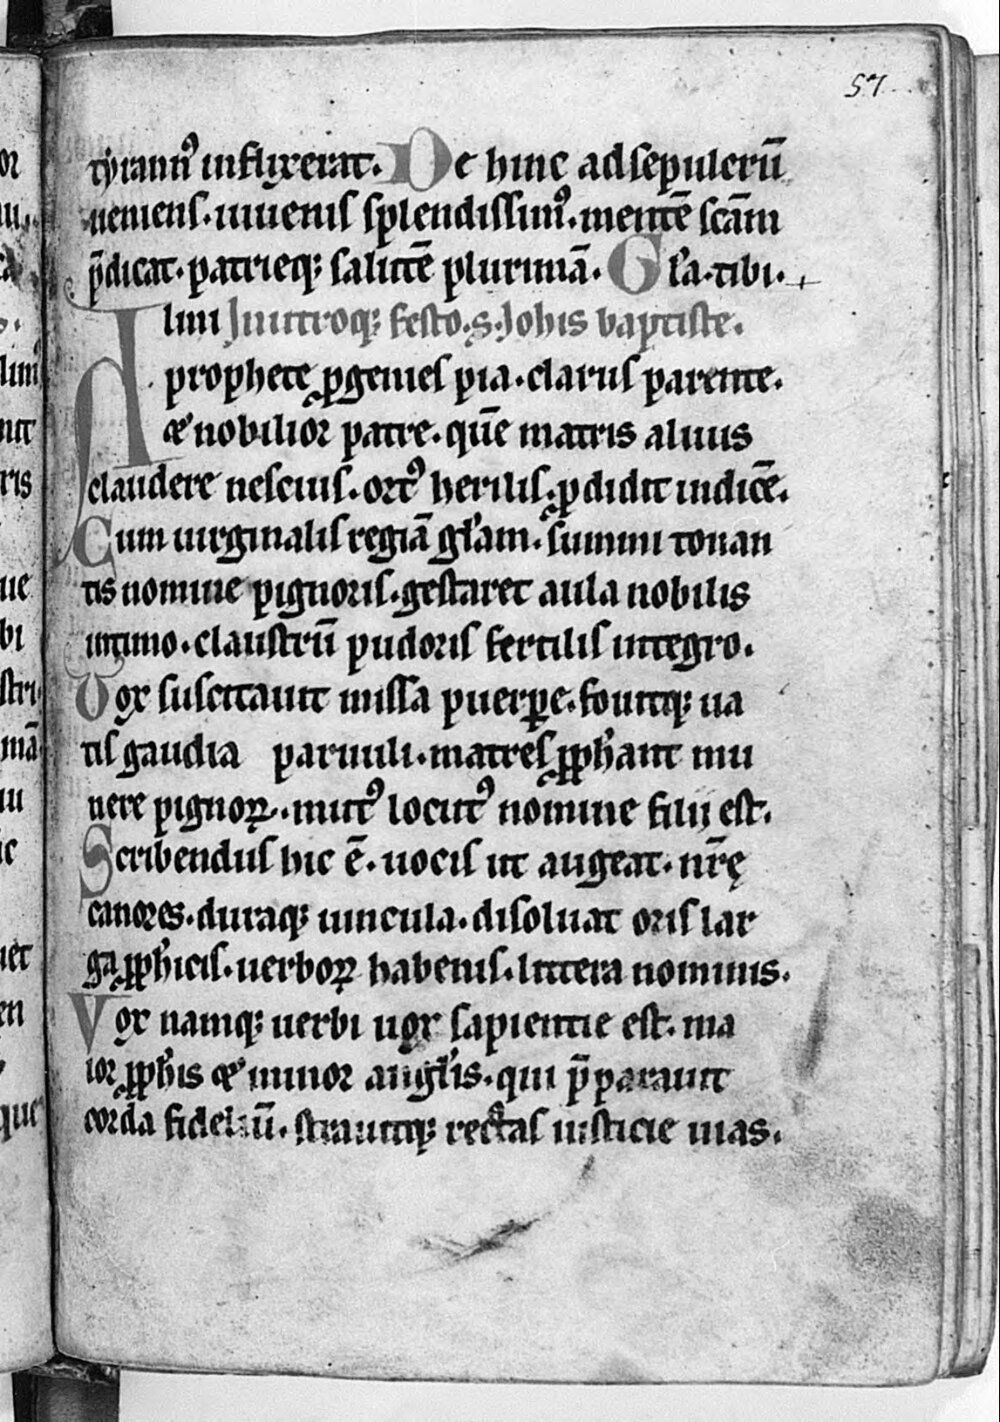 57
tyrann᷒ inflixerat. De hinc ad sepulcrū
ueniens. iuuenis splendissim᷒. mentē scām
p̄dicat. patrieq; salutē plurimā. Gl̄a. tibi.
lmi In utroq; festo. s. Joh̄is baptiste.
A prophete ꝓgenies pia. clarus parente.
& nobilior patre. quē matris aluus
claudere nescius. ort᷒ herilis. ꝓdidit indicē.
Cum uirginalis regiā gl̄am. summi tonan
tis nomine pignoris. gestaret aula nobilis
intimo. claustrū pudoris fertilis integro.
Vox suscitauit missa puerꝑe. fouitq; ua
tis gaudia paruuli. matres ꝓph̄ant mu
nere pignoꝝ. mut᷒ locut᷒ nomine filij est.
Scribendus hic ē. uocis ut augeat. nr̄ę
canores. duraq; uincula. disoluat oris lar
ga ꝓph̄icis. uerboꝝ habenis. littera nominis.
Vox namq; uerbi uox sapientie est. ma
ior ꝓph̄is & minor angl̄is. qui p̄parauit
corda fideliū. strauitq; rectas iusticie uias.